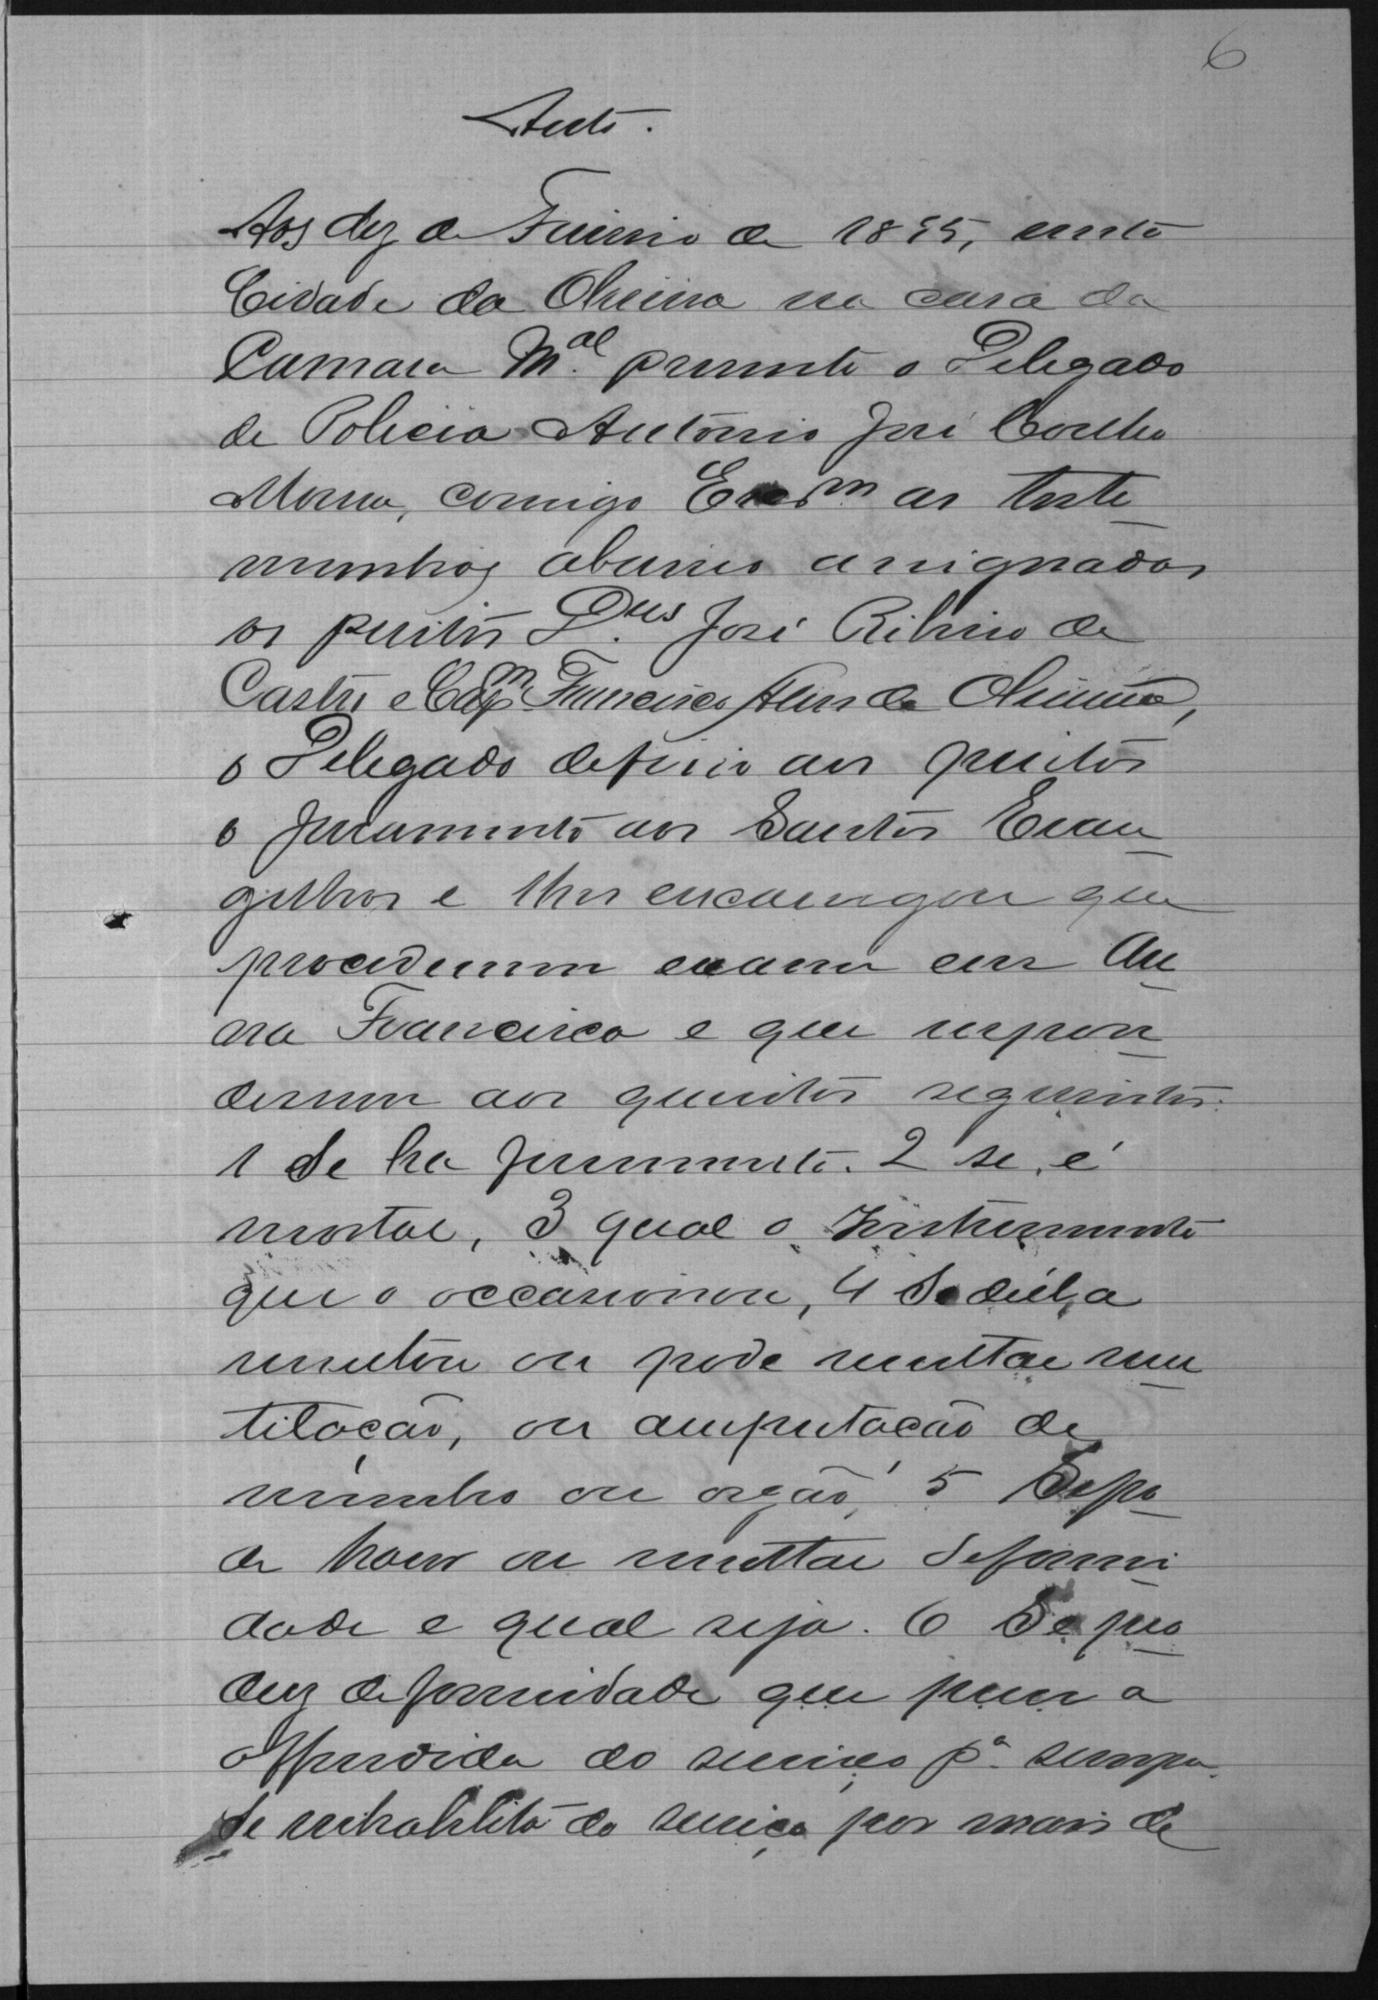 6
Auto.
Aos dez de Fevereiro de 1895, nesta
Cidade da Oliveira na casa da
Camara M.al presente o Delegado
de Policia Antonio José Coelho
Moura, comigo as teste
munhas abaixo assignados
os peritos D.res José Ribeiro de
Castro e Cap.m Francisco Alves de Oliveira,
o Delegado deferio aos peritos
o juramento aos Santos Evan
gelhos e lhes encarregou que
procedessem exame em An
na Francisca e que respon
dessem aos quesitos seguintes:
1 Se ha ferimento. 2 se é
mortal, 3 qual o instrumento
que o occasionou, 4 Se delle
resultou ou pode resultar mu
tilação, ou amputação de
membro ou orgão, 5 Se po
de haver ou resultar deformi
dade e qual seja. 6 Se pro
duz deformidade que prive a
offendida do serviço p.a sempre.
Se inhabilita do serviço por mais de